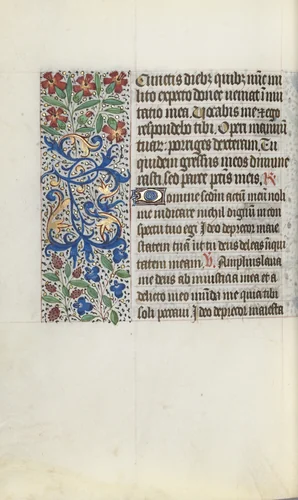 Cunctis diebus quibus nunc mi
lito expecto donec veniat immu
tatio mea. Vocabis me et ego
respondebo tibi. Operi manuum
tuarum porriges dexteram. Tu
quidem gressus meos dinume
rasti sed parce peccatis meis. R
Domine secundum actum meum noli
me iudicare nichil dignum in con
spectu tuo egi. Ideo deprecor maie
statem tuam ut tu deus deleas iniqui
tatem meam. V. Amplius lava
me deus ab iniusticia mea et a
delicto meo munda me quia tibi
soli peccavi. Ideo deprecor maiesta